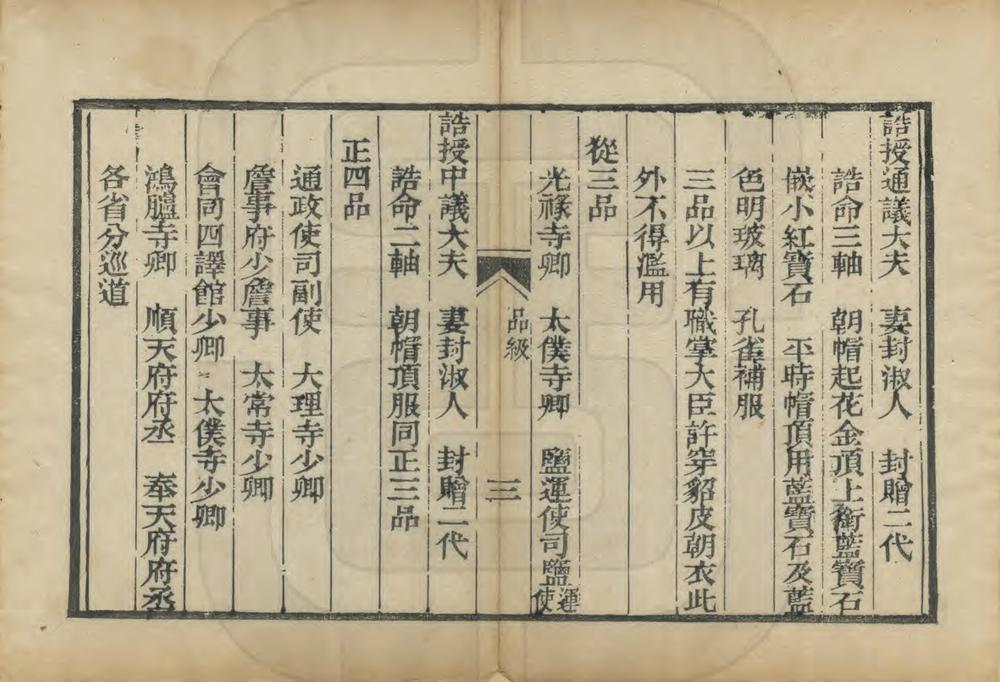 誥授通議大夫　妻封淑人　封贈二代
誥命三軸　朝帽起花金頂上銜藍寶石
嵌小紅寶石　平時帽頂用藍寶石及藍
色明玻璃　孔雀補服
三品以上有職掌大臣許穿貂皮朝衣此
外不得濫用
從三品
光祿寺卿　太僕寺卿　鹽運使司鹽運使
品級　三
誥授中議大夫　妻封淑人　封贈二代
誥命二軸　朝帽頂服同正三品
正四品
通政使司副使　大理寺少卿
詹事府少詹事　太常寺少卿
會同四譯館少卿　太僕寺少卿
鴻臚寺卿　順天府府丞　奉天府府丞
各省分巡道